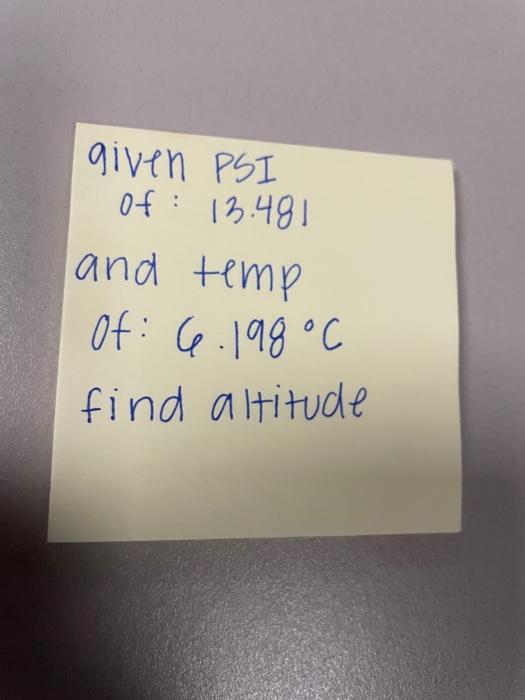 given PSI
of: 13.481
and temp
of: 6.198 °C
find altitude